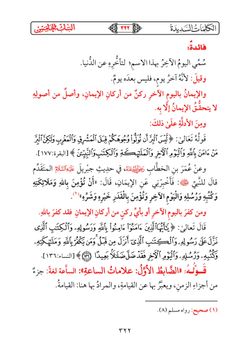 الكلمات السديدة
٣٢٢
فائدة:
سُمِّي اليومُ الآخرُ بهذا الاسمِ؛ لتأخُّرِه عن الدُّنيا.
وقيل: لأنَّه آخرُ يومٍ، فليس بعدَه يومٌ.
والإيمانُ باليومِ الآخرِ ركنٌ من أركانِ الإيمانِ، وأصلٌ من أصولِهِ
لا يتحقَّقُ الإيمانُ إلَّا بِهِ.
ومِن الأدلَّةِ على ذلكَ:
قولُهُ تعالى: ﴿لَّيْسَ ٱلْبِرَّ أَن تُوَلُّوا۟ وُجُوهَكُمْ قِبَلَ ٱلْمَشْرِقِ وَٱلْمَغْرِبِ وَلَٰكِنَّ ٱلْبِرَّ
مَنْ ءَامَنَ بِٱللَّهِ وَٱلْيَوْمِ ٱلْـَٔاخِرِ وَٱلْمَلَٰٓئِكَةِ وَٱلْكِتَٰبِ وَٱلنَّبِيِّـۧنَ﴾ [البقرة:١٧٧].
وعنْ عُمَرَ بنِ الخطَّابِ في حديثِ جبريلَ المتقدِّمِ
قالَ للنَّبيِّ ﷺ: فأخبِرْني عنِ الإيمانِ، قالَ: «أَنْ تُؤْمِنَ بِاللهِ وَمَلَائِكَتِهِ
وَكُتُبِهِ وَرُسُلِهِ وَالْيَوْمِ الْآخِرِ وَتُؤْمِنَ بِالْقَدَرِ خَيْرِهِ وَشَرِّهِ»(١).
ومن كفرَ باليومِ الآخرِ أو بأيِّ ركنٍ من أركانِ الإيمانِ فقد كفرَ باللهِ.
قالَ تعالى: ﴿يَٰٓأَيُّهَا ٱلَّذِينَ ءَامَنُوٓا۟ ءَامِنُوا۟ بِٱللَّهِ وَرَسُولِهِۦ وَٱلْكِتَٰبِ ٱلَّذِى
نَزَّلَ عَلَىٰ رَسُولِهِۦ وَٱلْكِتَٰبِ ٱلَّذِىٓ أَنزَلَ مِن قَبْلُ وَمَن يَكْفُرْ بِٱللَّهِ وَمَلَٰٓئِكَتِهِۦ
وَكُتُبِهِۦ وَرُسُلِهِۦ وَٱلْيَوْمِ ٱلْـَٔاخِرِ فَقَدْ ضَلَّ ضَلَٰلًۢا بَعِيدًا﴾ [النساء:١٣٦].
قَولُهُ: «الضَّابطُ الأوَّلُ: علاماتُ الساعةِ»: الساعةُ لغةً: جزءٌ
من أجزاءِ الزمنِ، ويعبَّرُ بها عن القيامةِ، والمرادُ بها هنا: القيامةُ.
(١) صحيح: رواه مسلم (٨).
٣٢٢